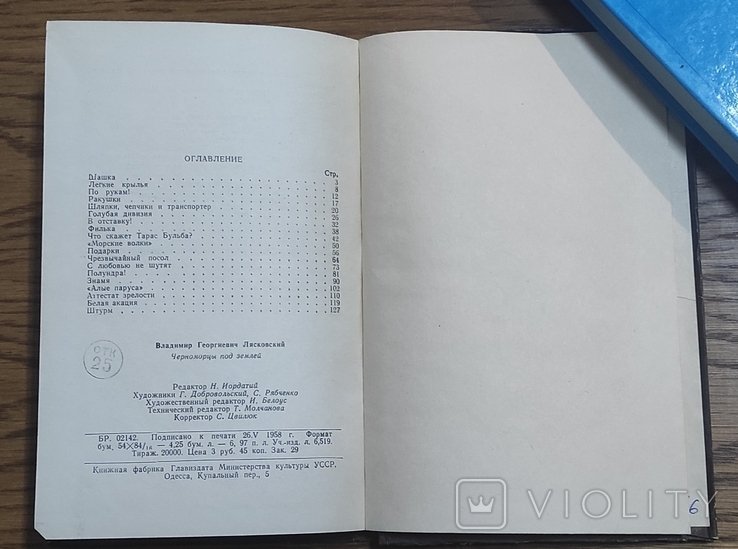 ОГЛАВЛЕНИЕ
Стр.
Шашка 3
Легкие крылья 8
По рукам! 12
Ракушки 17
Шляпки, чепчики и транспортер 20
Голубая дивизия 26
В отставку! 32
Филька 38
Что скажет Тарас Бульба? 42
«Морские волки» 50
Подарки 56
Чрезвычайный посол 64
С любовью не шутят 73
Полундра! 81
Знамя 90
«Алые паруса» 102
Аттестат зрелости 110
Белая акация 119
Штурм 127
Владимир Георгиевич Лясковский
Черноморцы под землей
ОТК
25
Редактор Н. Иордатий
Художники Г. Добровольский, С. Рябченко
Художественный редактор И. Белоус
Технический редактор Т. Молчанова
Корректор С. Цвилюк
БР. 02142. Подписано к печати 26.V 1958 г. Формат
бум. 54×84/16 — 4,25 бум. л. — 6, 97 п. л. Уч.-изд. л. 6,519.
Тираж. 20000. Цена 3 руб. 45 коп. Зак. 29
Книжная фабрика Главиздата Министерства культуры УССР,
Одесса, Купальный пер., 5
6
VIOLITY